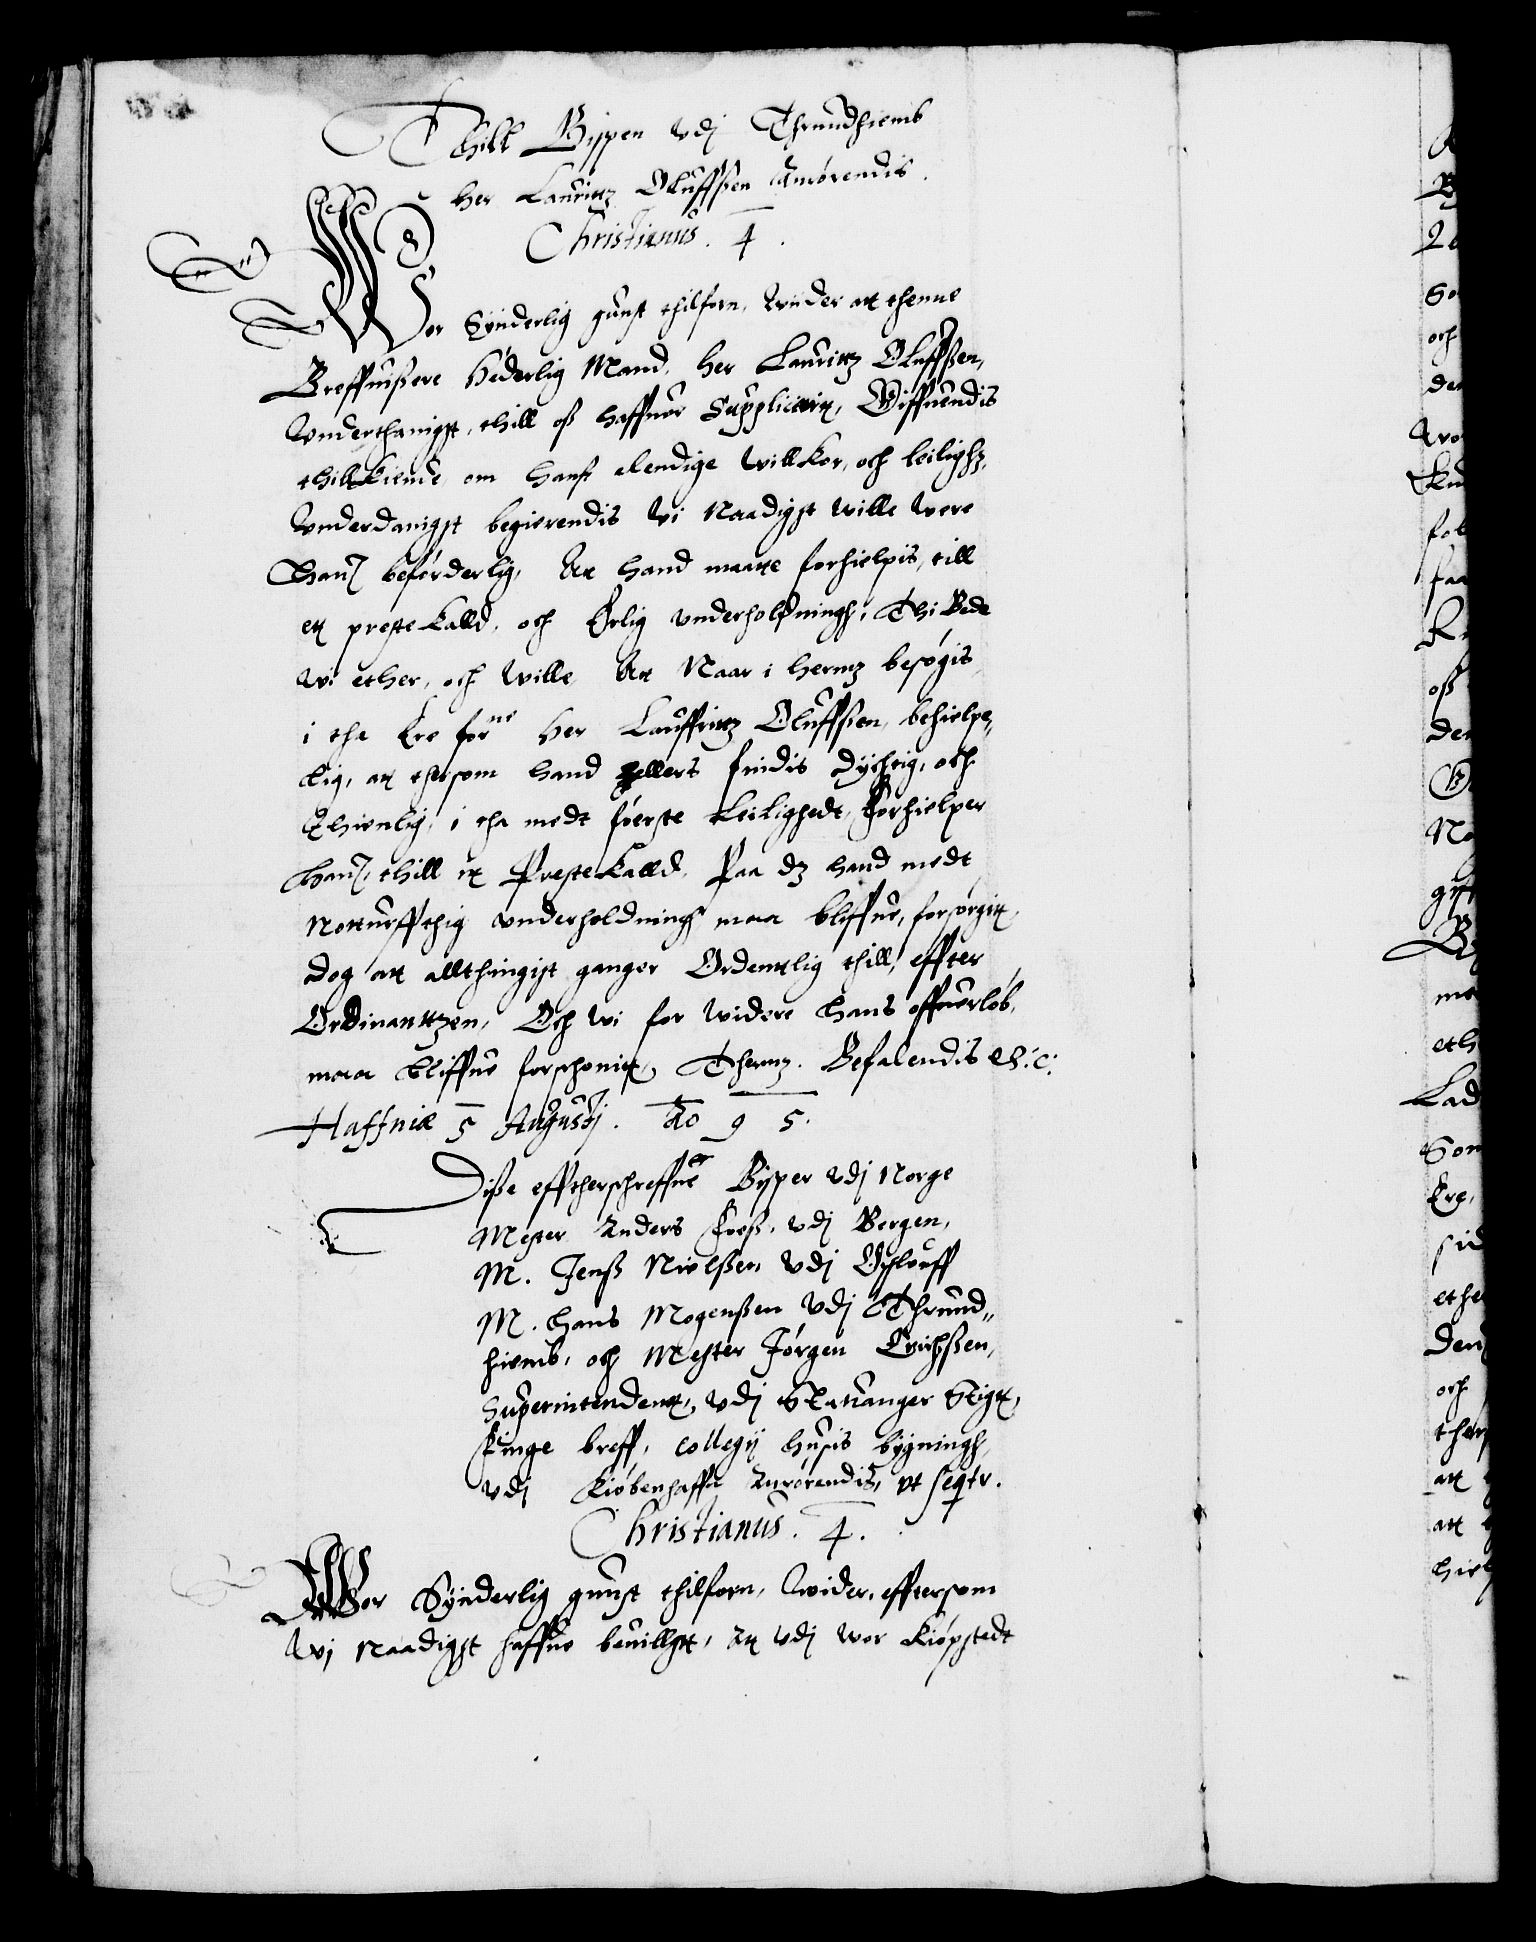 Thill Bispen vdj Thrundhiemb
her Lauritz Oluffssen Anrørendis.
Christianus. 4.
Wor Synderlig gunst thilforn, Wiider att thenne
Breffuissere Hederlig Mand, her Lauritz Oluffssen,
Vnderthanigst, thill oss haffuer Supplicerit, Giffuendis
thillkiende om hans elendige willkor, och leilighz,
Vnderdanigst begierendis wi Naadigst wille were
Hannom beførderlig, At hand maatte forhielpis till
et prestekalld, och Erlig vnderholdningh, Thi Bede
wi ether, och wille At Naar i hermz besøgis
i tha Ere forne her Lauffritz Oluffssen, behielpe„
lig, at thersom hand ellers findis dychtig, och
Thienlig, i tha medt første Leilighedt, Forhielper
Hannom, thill it Prestekalld, Paa dz hand medt
Notturffthig vnderholdningh maa bliffue, forsørgit,
dog att allthingist ganger Ordentlig thill, effter
Ordinanttzen, Och wi for widere hans offuerløb,
maa bliffue forschonit, Thermz. Befalendis etc:
Haffniæ 5 Augustj. Ao 95.
Disse efftherschreffne Bisper vdj Norge
Mester Anders Foss, vdj Bergen,
M. Jenss Nielssen vdj Opslouff
M. Hans Mogenssen vdj Thrund„
hiemb, och Mester Jørgen Erichssen,
Superintendent, vdj Stauanger Stigt,
Finge breff, collegij husis bygningh,
vdj Kiøbenhaffn Anrørendis, vt seqtr.
Christianus. 4.
Wor Synderlig gunst thilforn, Wider, efftersom
Wj Naadigst haffue beuillget, At vdj wor Kiøpstedt